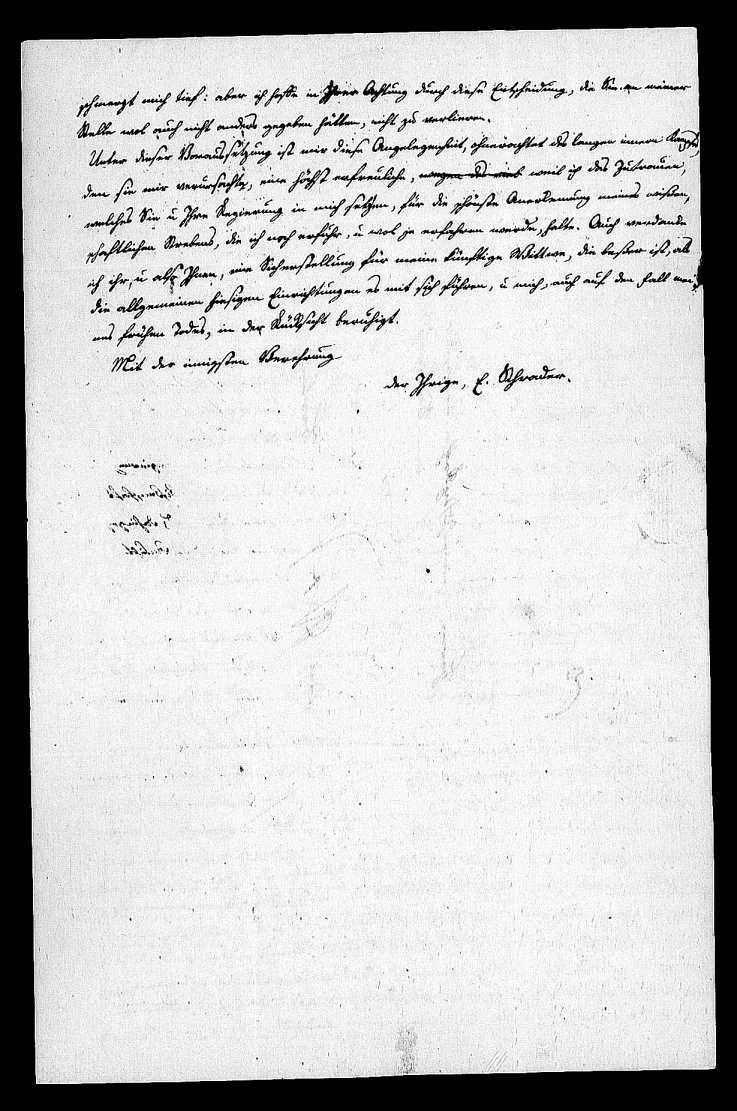 schmerzt mich tief: aber ich hoffe in Ihrer Achtung durch diese Entscheidung, die Sie an meiner
Stelle wol auch nicht anders gegeben hätten, nicht zu verlieren.
Unter dieser Voraussetzung ist mir diese Angelegenheit, ohnerachtet des langen innern Kampfes,
den sie mir verursachte, eine höchst erfreuliche, wegen des weil ich das Zutrauen,
welches Sie u Ihre Regierung in mich setzen, für die schönste Anerkennung meines wissen-
schaftlichen Strebens, die ich noch erfuhr, u wol je erfahren werde, halte. Auch verdanke
ich ihr, u also Ihnen, eine Sicherstellung für meine künftige Wittwe, die besser ist, als
die allgemeinen hiesigen Einrichtungen es mit sich führen, u mich, auch auf den Fall mei-
nes frühen Todes, in der Rücksicht beruhigt.
Mit der innigsten Verehrung
der Ihrige, E. Schrader.